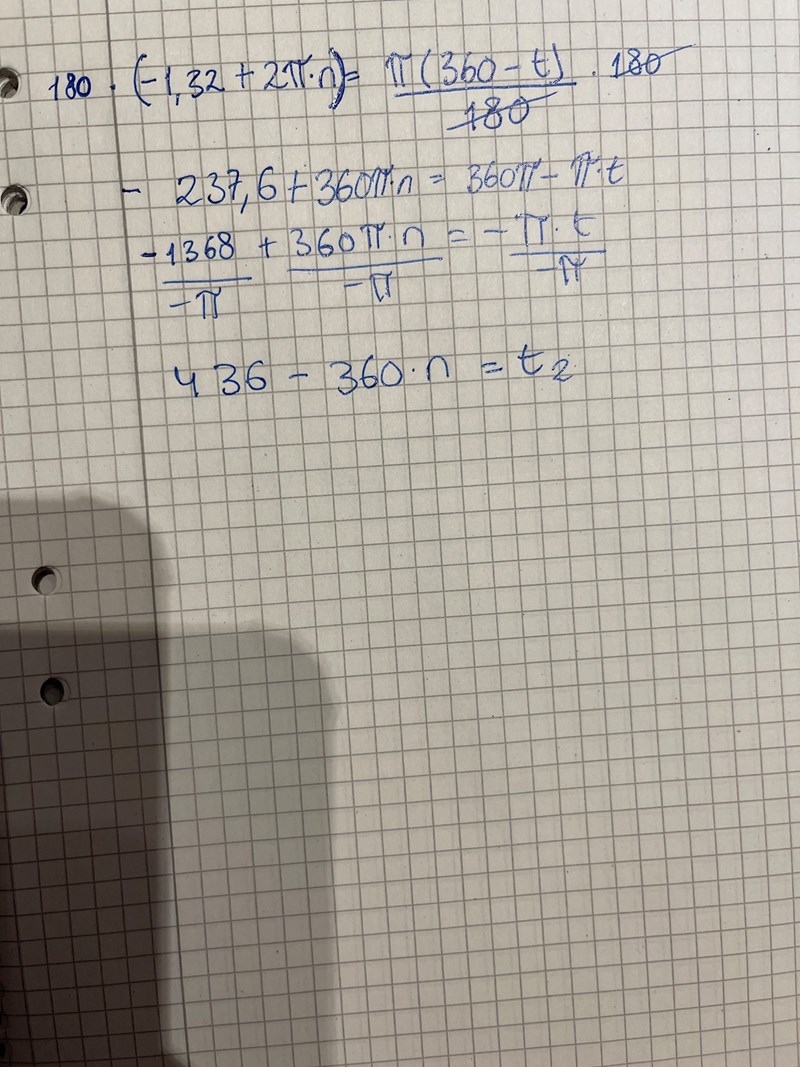 180 · (-1,32 + 2π·n) = π(360 - t)/180 · 180
- 237,6 + 360π·n = 360π - π·t
-1368/-π + 360π·n/-π = -π·t/-π
436 - 360·n = t₂